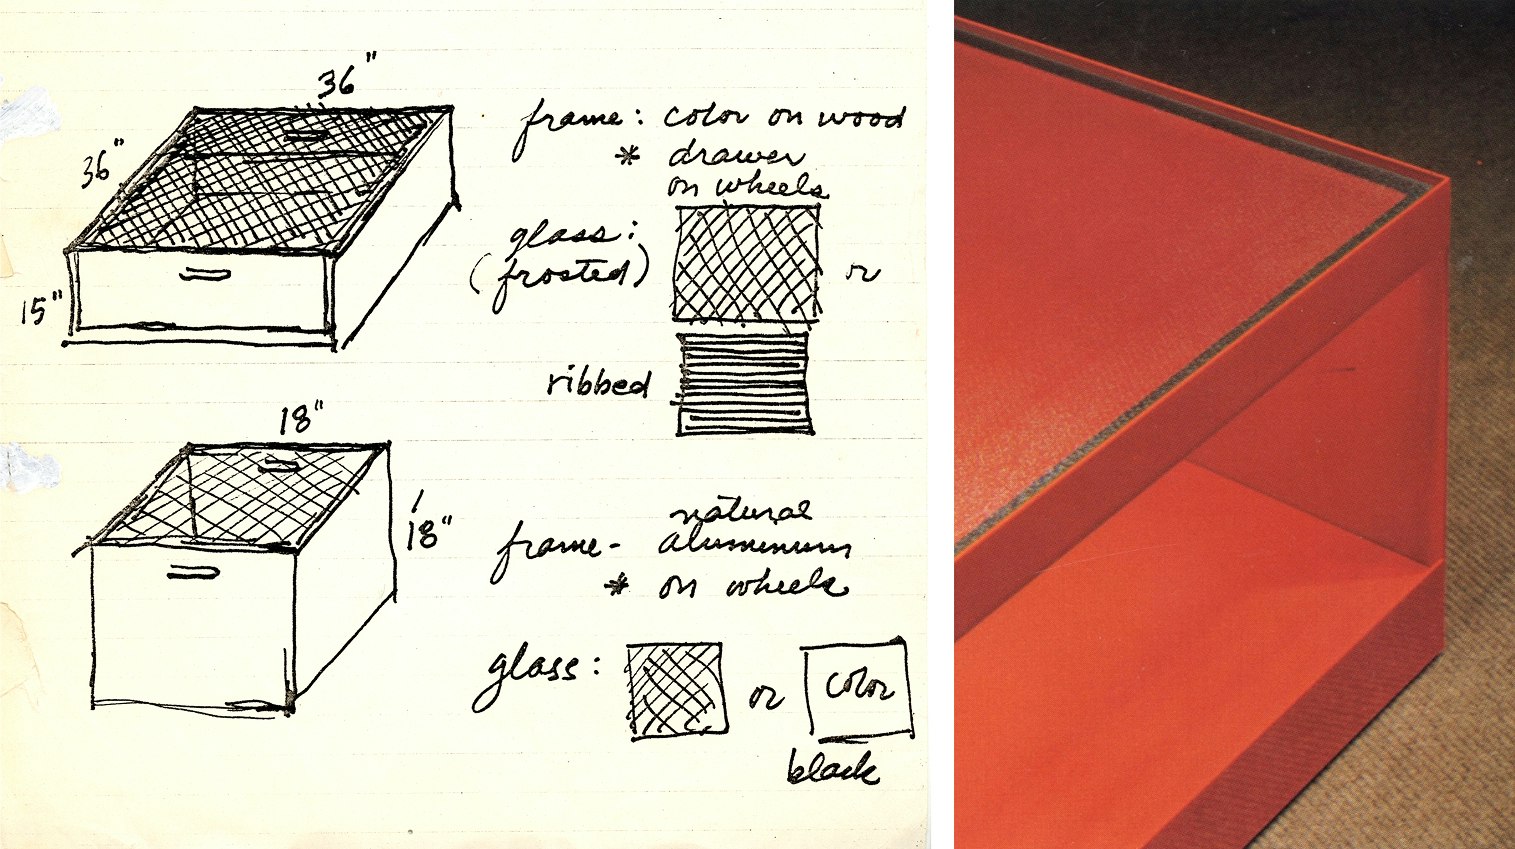 36"
36"
15"
frame: color on wood
* drawer
on wheels
glass:
(frosted)
or
ribbed
18"
18"
frame - natural
aluminum
* on wheels
glass:
or
color
black